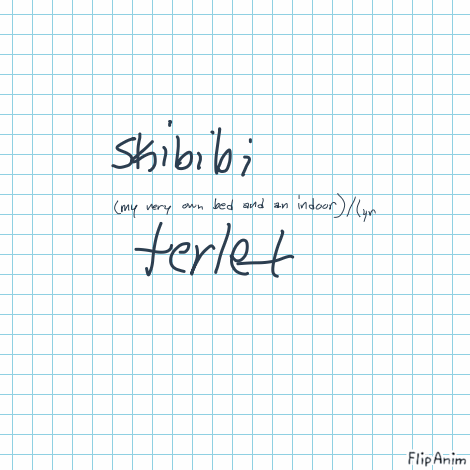 skibibi
(my very own bed and an indoor)/(yr
terlet
FlipAnim